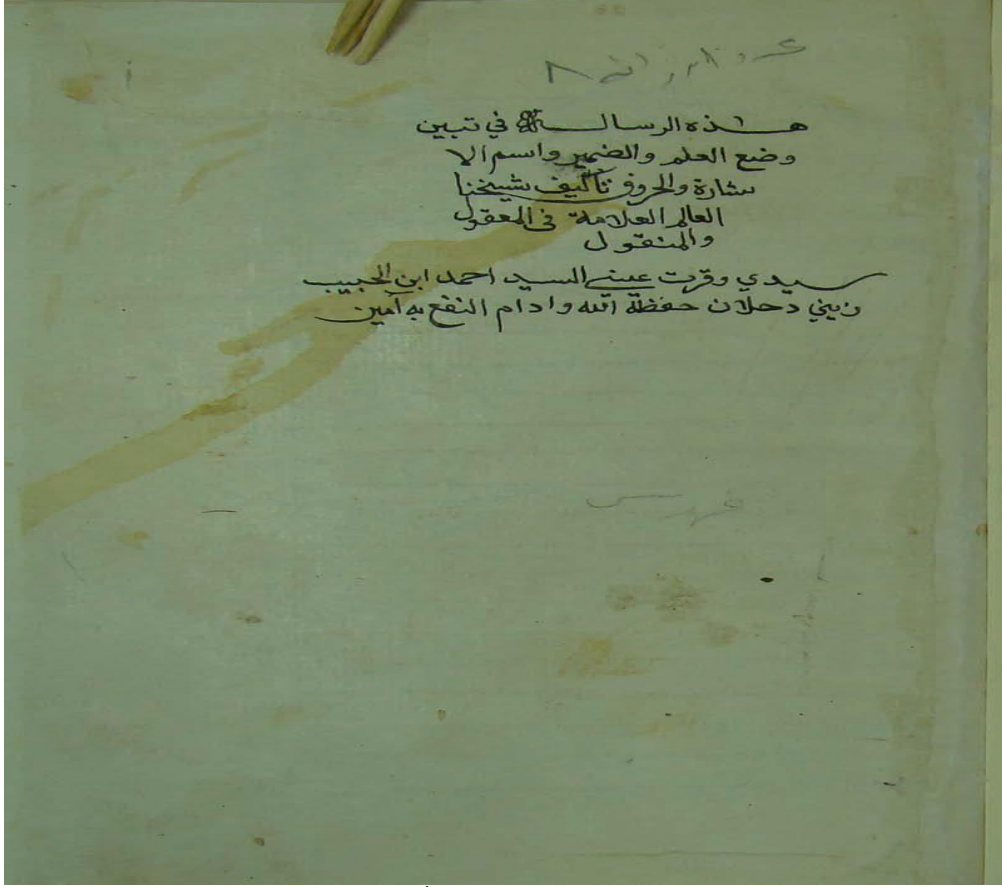 عدد اوراقه ٨
هذه الرسالة في تبين
وضع العلم والضمير واسم الا
شارة والحروف تأليف شيخنا
العالم العلامة في المعقول
والمنقول
سيدي وقرت عيني السيد احمد ابن الحبيب
زيني دحلان حفظة الله وادام النفع به آمين
فهرس